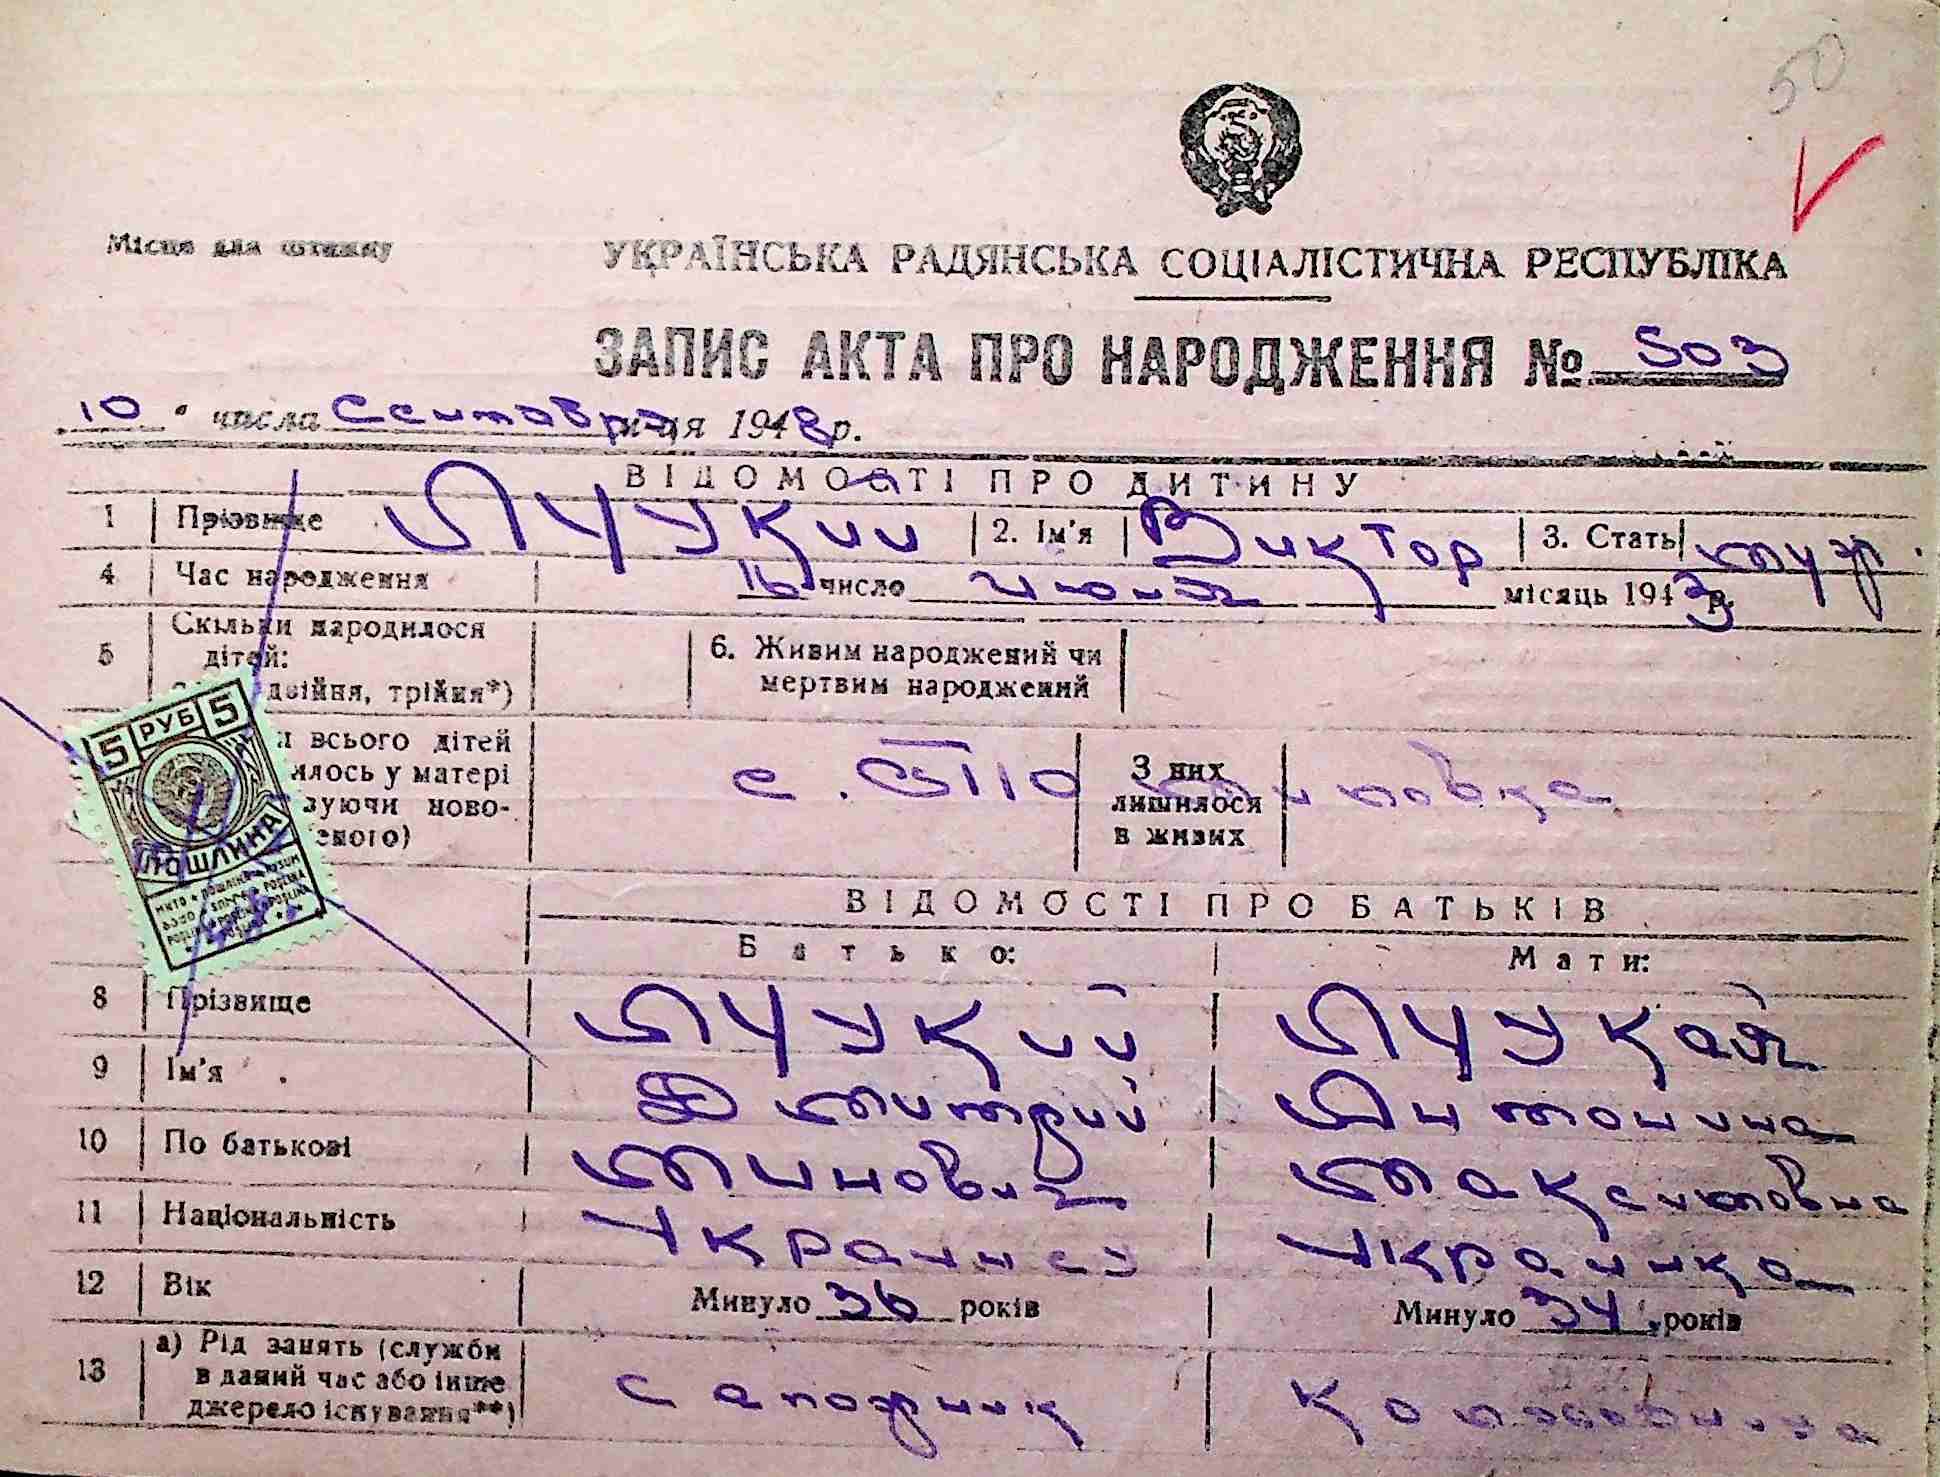 50
Місце для штампу
УКРАЇНСЬКА РАДЯНСЬКА СОЦІАЛІСТИЧНА РЕСПУБЛІКА
ЗАПИС АКТА ПРО НАРОДЖЕННЯ № 503
10 числа Сентября місяця 1948 р.
ВІДОМОСТІ ПРО ДИТИНУ
1 Прізвище Луцкий 2. Ім'я Виктор 3. Стать муж.
4 Час народження 16 число июня місяць 1943 р.
5 Скільки народилося дітей: двійня, трійня*) 6. Живим народжений чи мертвим народжений
и всього дітей илось у матері зуючи ново- еного) с. З них лишилося в живих
ВІДОМОСТІ ПРО БАТЬКІВ
Батько: Мати:
8 Прізвище Луцкий Луцкая
9 Ім'я Дмитрий Антонина
10 По батькові Минович Максимовна
11 Національність Украинец Украинка
12 Вік Минуло 36 років Минуло 34 років
13 а) Рід занять (служби в даний час або інше джерело існування**) сапожник Колхозница
5 РУБ 5
ПОШЛИНА